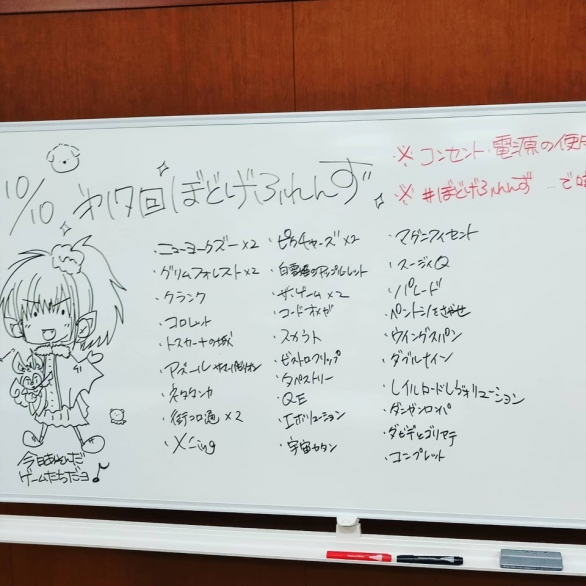 10/10 第17回ぼどげふれんず
※コンセント・電源の使用
※#ぼどげふれんず
・ニューヨークズー×2
・グリムフォレスト×2
・クランク
・コロレット
・トスカーナの城
・アズール
・街コロ通×2
・ピクチャーズ×2
・白雪姫のアップルルーレット
・ザ・ゲーム×2
・コードオメガ
・スカウト
・ビストロフリップ
・タペストリー
・QE
・エボリューション
・宇宙カタン
・マグニフィセント
・スージィQ
・パレード
・ペンションをさがせ
・ウイングスパン
・ダブルナイン
・レイルロードレヴォリューション
・ダンガンロンパ
・ダビデとゴリアテ
・コンプレット
今日あそんだ
ゲームたちだヨ♪